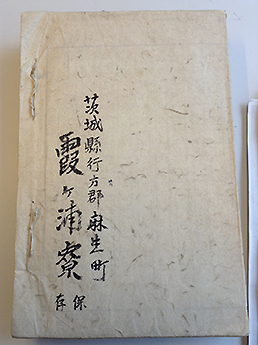 茨城縣行方郡麻生町
霞ヶ浦寮
保存